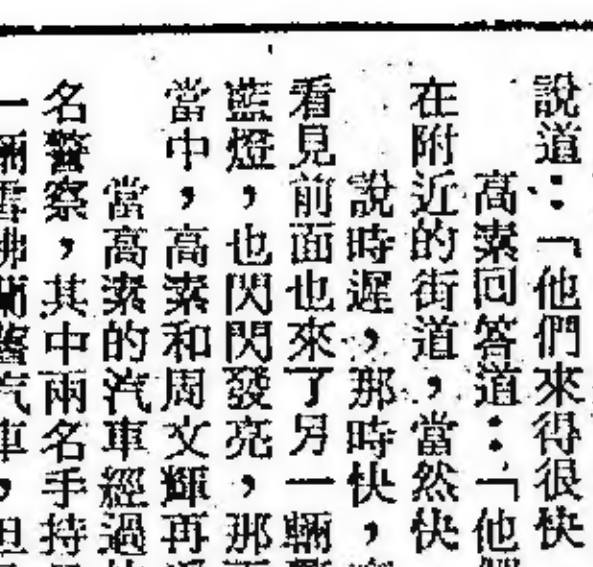 說道：「他們來得很快
高素回答道：「他
在附近的街道，當然快
說時遲，那時快，
看見前面也來了另一輛
藍燈，也閃閃發亮，那
當中，高素和周文輝再
當高素的汽車經過
名警察，其中兩名手持
一輛雪佛蘭警汽車，但